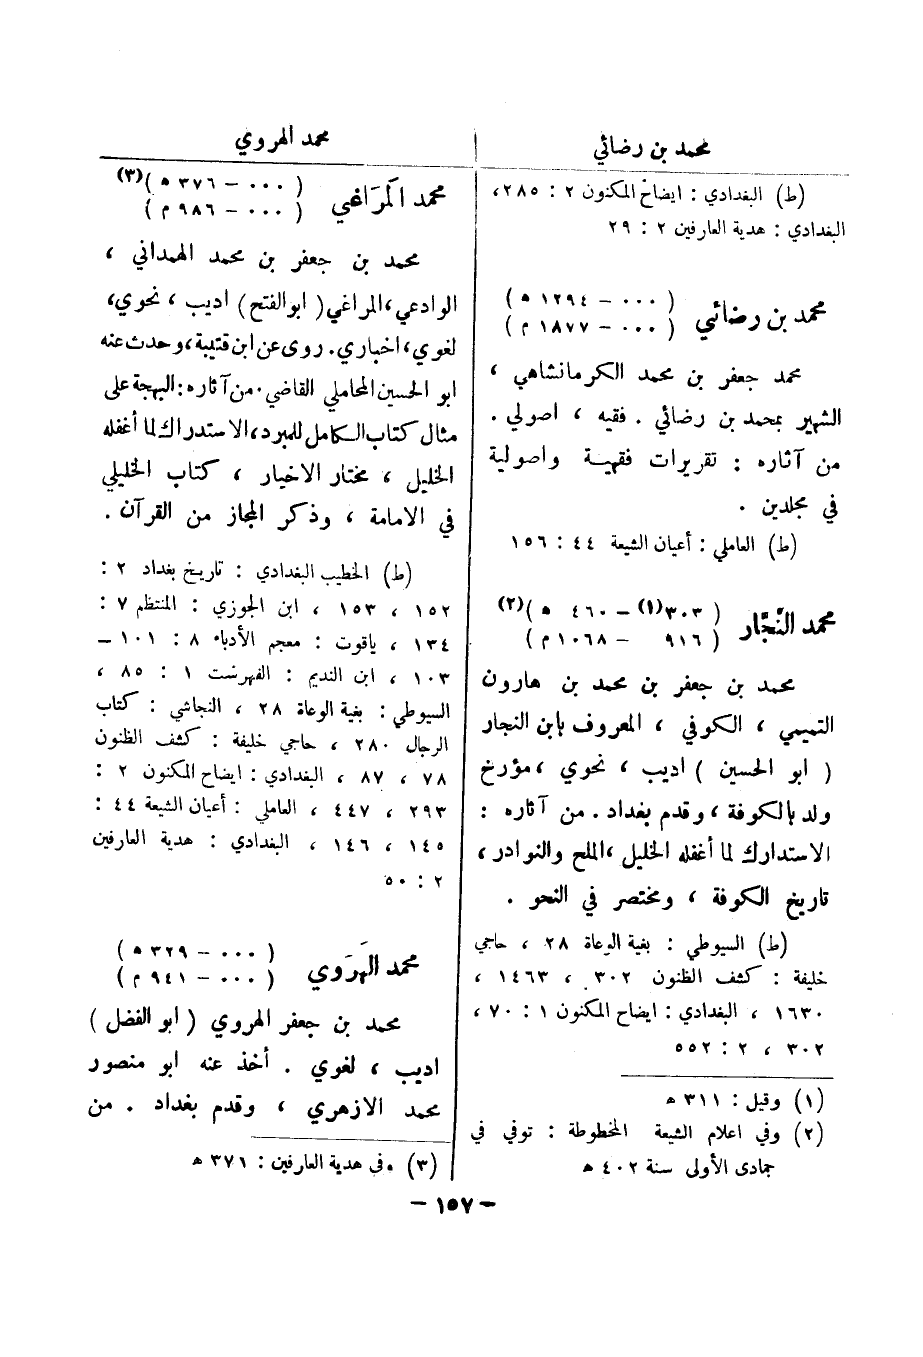 محمد بن رضائي
(ط) البغدادي : ايضاح المكنون ٢ : ٢٨٥،
البغدادي : هدية العارفين ٢ : ٢٩
محمد بن رضائي ( ٠٠٠ - ١٢٩٤ هـ )
( ٠٠٠ - ١٨٧٧ م )
محمد جعفر بن محمد الكرمانشاهي ،
الشهير بمحمد بن رضائي . فقيه ، اصولي .
من آثاره : تقريرات فقهية واصولية
في مجلدين .
(ط) العاملي : أعيان الشيعة ٤٤ : ١٥٦
محمد النَّجَّار ( ٣٠٣(١) - ٤٦٠ هـ )(٢)
( ٩١٦ - ١٠٦٨ م )
محمد بن جعفر بن محمد بن هارون
التميمي ، الكوفي ، المعروف بابن النجار
( ابو الحسين ) اديب ، نحوي ، مؤرخ
ولد بالكوفة ، وقدم بغداد . من آثاره :
الاستدراك لما أغفله الخليل ، الملح والنوادر ،
تاريخ الكوفة ، ومختصر في النحو .
(ط) السيوطي : بغية الوعاة ٢٨ ، حاجي
خليفة : كشف الظنون ٣٠٢ ، ١٤٦٣ ،
١٦٣٠ ، البغدادي : ايضاح المكنون ١ : ٧٠ ،
٣٠٢ ، ٢ : ٥٥٢
(١) وقيل : ٣١١ هـ
(٢) وفي اعلام الشيعة المخطوطة : توفي في
جمادى الأولى سنة ٤٠٢ هـ
محمد الهروي
محمد المَرَاغي ( ٠٠٠ - ٣٧٦ هـ )(٣)
( ٠٠٠ - ٩٨٦ م )
محمد بن جعفر بن محمد الهمداني ،
الوادعي ، المراغي ( ابو الفتح ) اديب ، نحوي ،
لغوي ، اخباري . روى عن ابن قتيبة ، وحدث عنه
ابو الحسين المحاملي القاضي . من آثاره : البهجة على
مثال كتاب الكامل للمبرد ، الاستدراك لما أغفله
الخليل ، مختار الاخبار ، كتاب الخليلي
في الامامة ، وذكر المجاز من القرآن .
(ط) الخطيب البغدادي : تاريخ بغداد ٢ :
١٥٢ ، ١٥٣ ، ابن الجوزي : المنتظم ٧ :
١٣٤ ، ياقوت : معجم الأدباء ٨ : ١٠١ -
١٠٣ ، ابن النديم : الفهرست ١ : ٨٥ ،
السيوطي : بغية الوعاة ٢٨ ، النجاشي : كتاب
الرجال ٢٨٠ ، حاجي خليفة : كشف الظنون
٧٨ ، ٨٧ ، البغدادي : ايضاح المكنون ٢ :
٢٩٣ ، ٤٤٧ ، العاملي : أعيان الشيعة ٤٤ :
١٤٥ ، ١٤٦ ، البغدادي : هدية العارفين
٢ : ٥٠
محمد الهَرَوي ( ٠٠٠ - ٣٢٩ هـ )
( ٠٠٠ - ٩٤١ م )
محمد بن جعفر الهروي ( ابو الفضل )
اديب ، لغوي . أخذ عنه ابو منصور
محمد الازهري ، وقدم بغداد . من
(٣) في هدية العارفين : ٣٧١ هـ
- ١٥٧ -